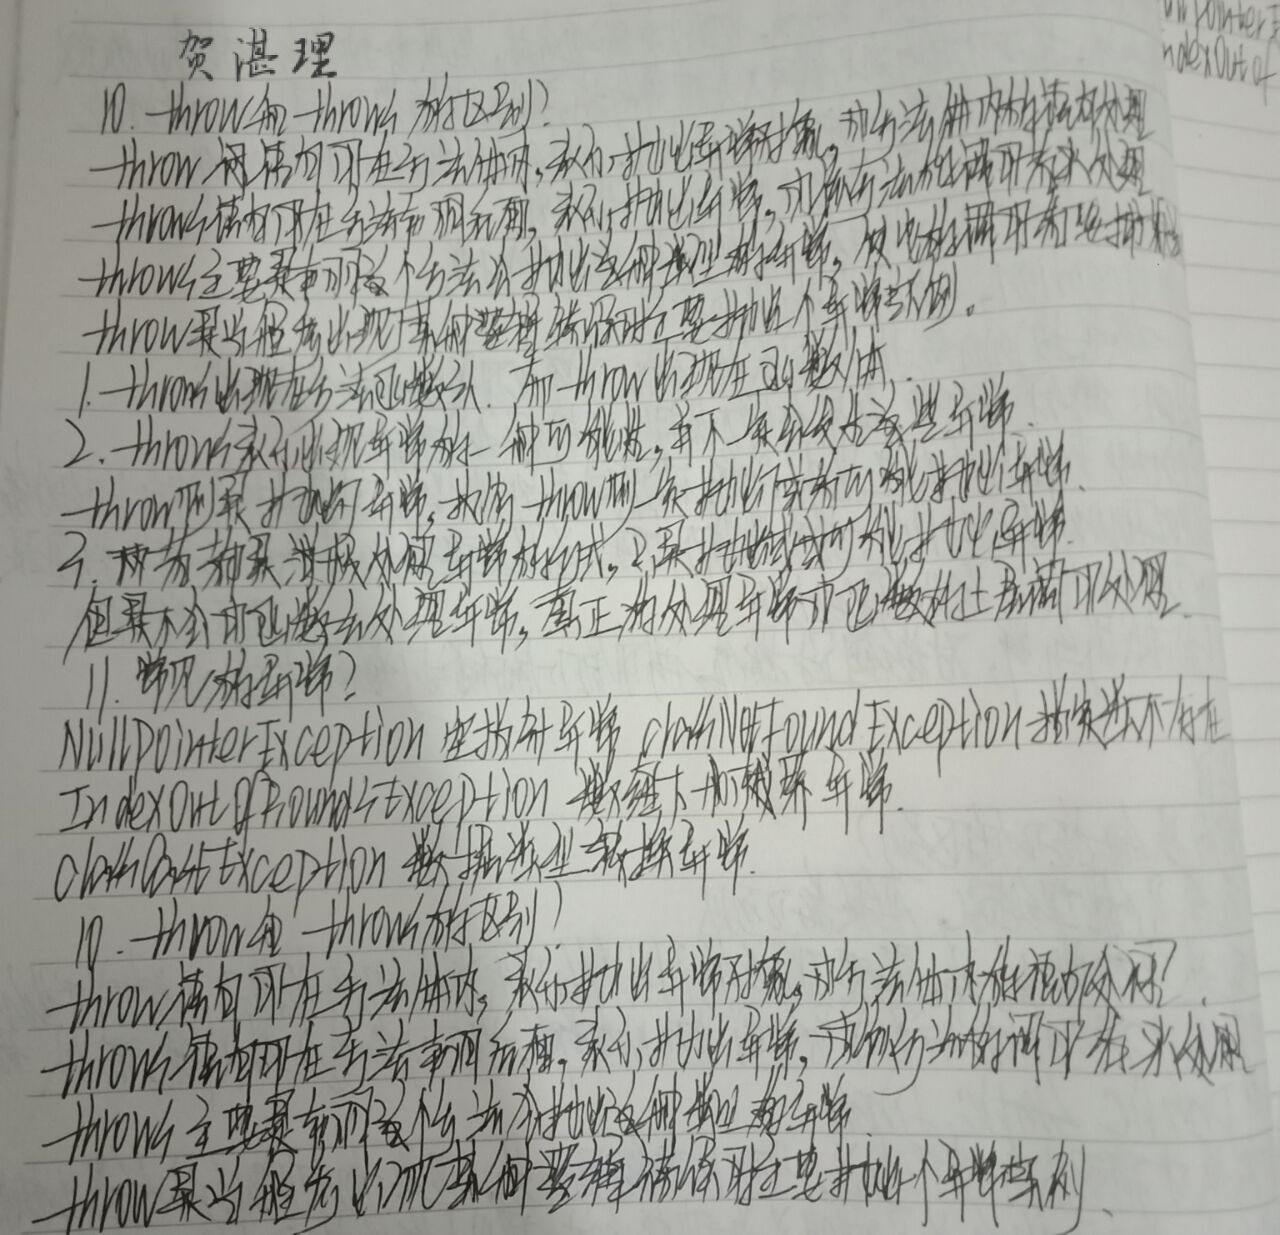 贺湛理
10. throw和 throws的区别?
throw 语句用在方法体内,表示抛出异常对象,由方法体内的语句处理
throws语句用在方法声明后面,表示抛出异常,由该方法的调用者来处理
throws主要是声明这个方法会抛出这种类型的异常,使它的调用者要捕
throw是当程序出现某种逻辑错误时主要抛出个异常实例。
1. throws出现在方法函数头. 而 throw出现在函数体.
2. throws表示出现异常的一种可能性,并不一定会发生这些异常.
throw则是抛出了异常,执行throw则一定抛出了某种 抛出异常.
3. 两者都是消极处理异常的方式,只是抛出或可能抛出异常.
但是不会由函数去处理异常,真正的处理异常由函数的上层调用处理.
11. 常见的异常?
NullPointerException 空指针异常 classNotFoundException 指定类不存在
IndexOutOfBoundsException 数组下标越界异常.
classCastException 数据类型转换异常.
10. throw和 throws的区别?
throw语句用在方法体内,表示抛出异常对象,由方法体内的语句处理?
throws语句用在方法声明后面,表示抛出异常,由该方法的调用者来处理
throws主要是声明这个方法会抛出这种类型的异常
throw是当程序出现某种逻辑错误时主要抛出个异常实例.
unPointerE
ndexOut of